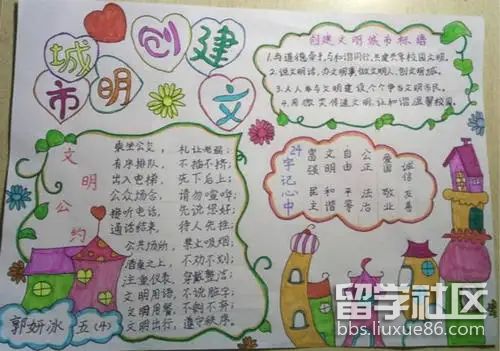 创建文
明城市
创建文明城市标语
1.与道德牵手,与和谐同行,共建共享校园文明。
2.说文明话,办文明事,做文明人,创文明城。
3.人人参与文明建设,个个争当文明市民。
4.用微笑传递文明,让和谐温馨校园。
文明公约
乘坐公交,礼让老弱;
有序排队,不插不挤;
出入电梯,先下后上;
公众场合,请勿喧哗;
接听电话,先说您好;
通话结束,待人先挂;
公共场所,禁止吸烟;
酒桌之上,不劝不划;
注重仪表,穿戴整洁;
文明用语,不说脏字;
文明用餐,不剩不弃;
文明出行,遵守秩序。
24字记心中
富强 民主
文明 和谐
自由 平等
公正 法治
爱国 敬业
诚信 友善
郭妍冰 五(4)
留学社区
bbs.liuxue86.com